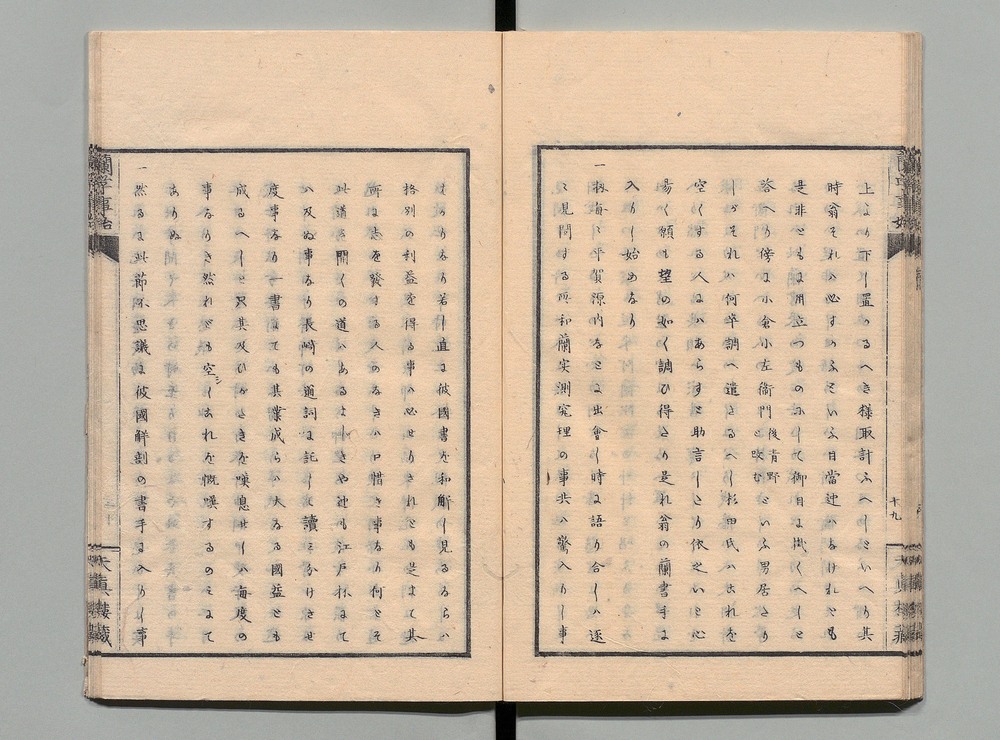 上より下し置るへき様取計ふへしといへり其
時翁それハ必すのふといふ目當迚ハなけれとも
是非とも用立つものにして御目に掛くへしと
答へり傍に小倉小左衞門後青野と改むといふ男居たり
しがそれハ何卒調へ遣さるへし杉田氏ハ之れを
空くする人にハあらすと助言したり依之いと心
易く願も望の如く調ひ得たり是れ翁の蘭書手に
入りし始めなり
一扨毎々平賀源内なとと出會し時に語り合しハ逐
々見聞する所和蘭実測究理の事共ハ驚入りし事
はかりなり若し直に彼國書を和解し見るならハ
格別の利益を得る事ハ必せりされとも是まて其
所に志を發する人のなきハ口惜き事なり何とそ
此道を開くの道ハあるましきや迚も江戸抔にて
ハ及ぬ事なり長崎の通詞に託して讀わけさせ
度事なり一書にても其業成らハ大なる國益とも
成るへしと只其及ひかたきを嘆息せしハ毎度の
事なりき然れども空しくこれを慨嘆するのミにて
ありぬ
一然るに此節不思議に彼國解剖の書手に入りし事
蘭學事始
十九
天真樓藏
蘭學事始
天真樓藏